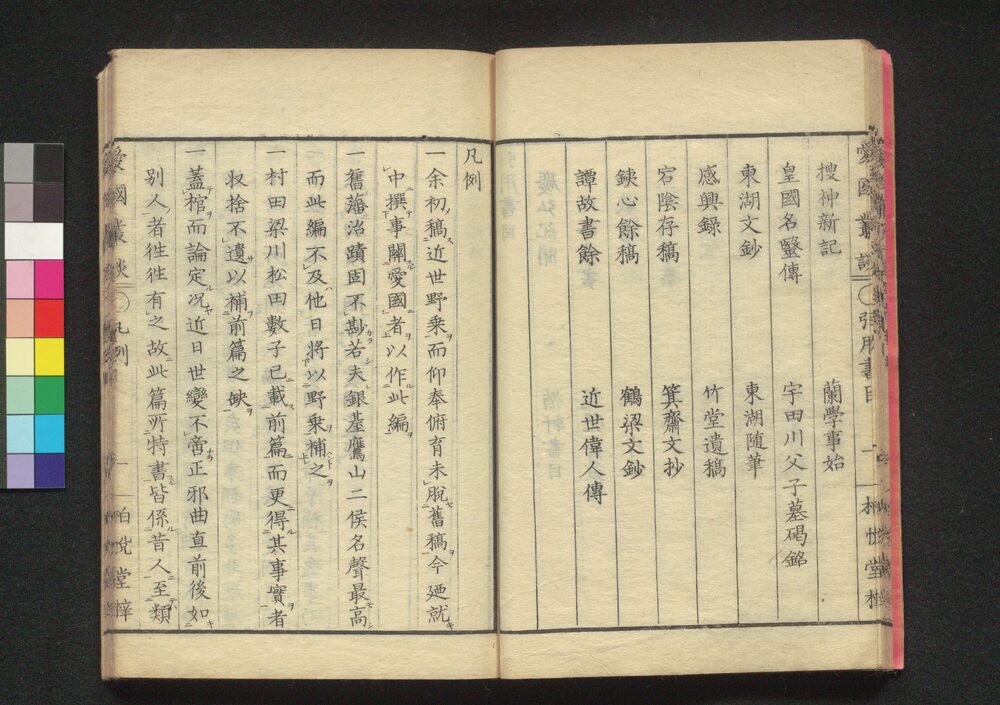 愛國叢談 引用書目
搜神新記 蘭學事始
皇國名醫傳 宇田川父子墓碣銘
東湖文鈔 東湖隨筆
感興錄 竹堂遺稿
宕陰存稿 箕齋文抄
鋑心餘稿 鶴梁文鈔
譚故書餘 近世偉人傳
凡例
一余初稿近世野乘而仰奉俯育未脫舊稿今廼就
中撰事關愛國者以作此編
一舊藩治蹟固不尠若夫銀臺鷹山二侯名聲最高
而此編不及他日將以野乘補之
一村田梁川松田數子已載前篇而更得其事實者
収捨不遺以補前篇之缺
一蓋棺而論定况近日世變不啻正邪曲直前後如
別人者徃徃有之故此篇所特書皆係昔人至類
愛國叢談 凡例 一 柏悅堂梓